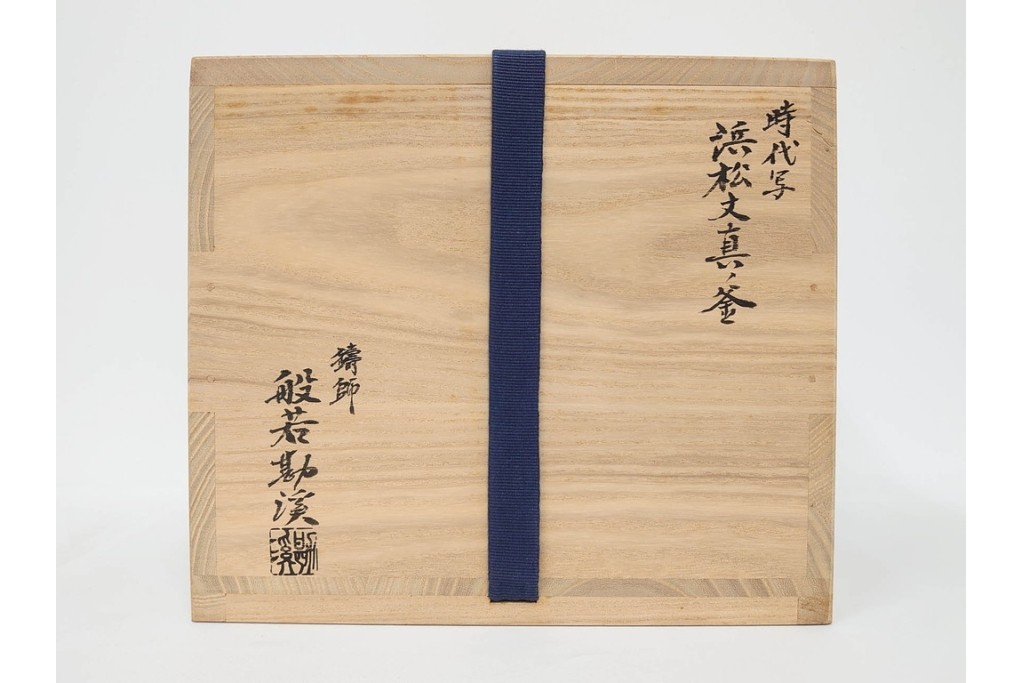 時代写
浜松文真ノ釜
鋳師
般若勘渓
勘渓